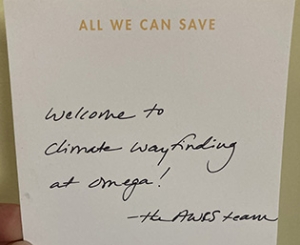 ALL WE CAN SAVE
Welcome to
Climate Wayfinding
at Omega!
-the AWCS team